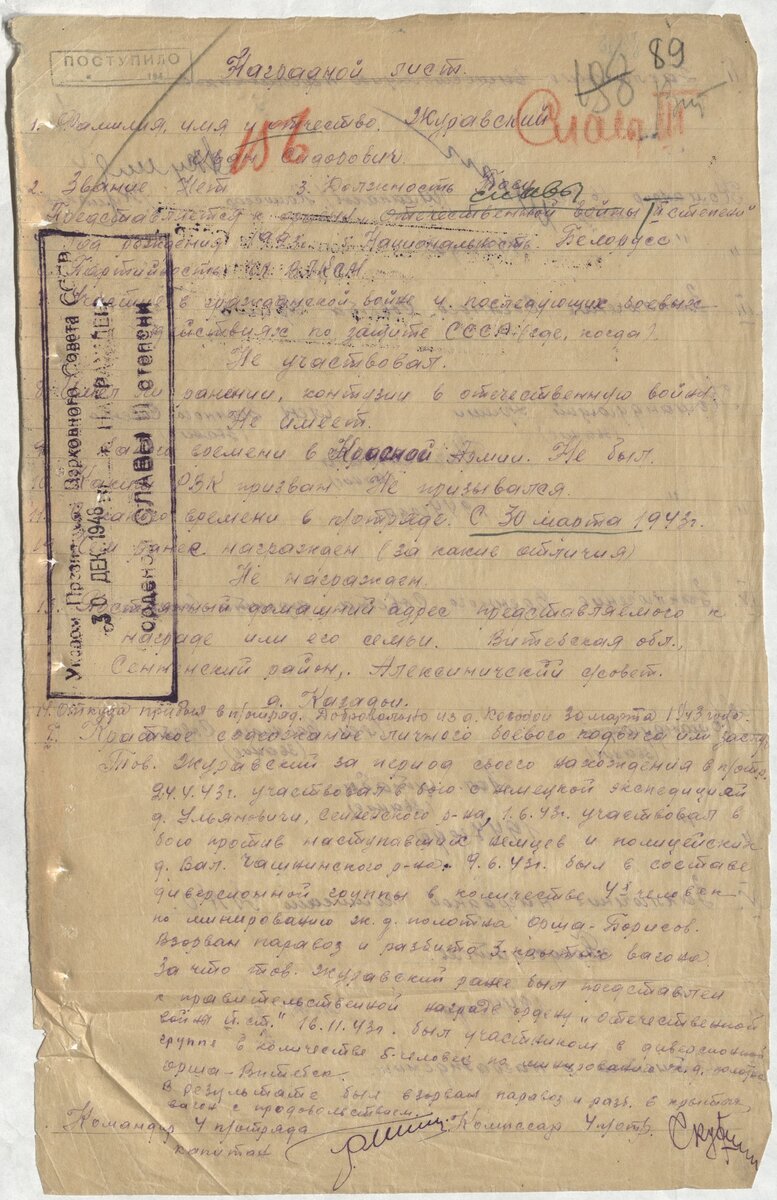 ПОСТУПИЛО
198
89
Наградной лист.
Слава III
1. Фамилия, имя и отчество. Журавский
Иван Сидорович.
156
2. Звание Нет 3. Должность
славы
Представляется к Отечественной войны II степени"
Год рождения 1925 Национальность Белорусс
Партийность ВЛКСМ
Участие в гражданской войне и последующих боевых
действиях по защите СССР (где, когда).
Не участвовал.
8. ли ранении, контузии в отечественную войну.
Не имеет.
9. времени в Красной Армии. Не был.
10. Каким РВК призван Не призывался.
11. времени в п/отряде. С 30 марта 1943г.
12. ранее награжден (за какие отличия)
Не награжден.
13. Постоянный домашний адрес представляемого к
награде или его семьи. Витебская обл.,
Сенненский район, Алексиничский с/совет.
д. Казадои.
14. Откуда прибыл в п/отряд. Добровольно из д. 30 марта 1943 года.
I. Краткое личного боевого подвига или заслуг
Тов. Журавский за период своего нахождения в п/отр.
24.4.43г. участвовал в бою с немецкой экспедицией
д. Ульяновичи, Сенненского р-на, 1.6.43г. участвовал в
бою против наступавших немцев и полицейских
д. Вал. Чашникского р-на. 9.6.43г. был в составе
диверсионной группы в количестве человек
по минированию ж.д. полотна Орша-Борисов.
Взорван паравоз и разбито 3 крытых вагона.
За что тов. Журавский раже был представлен
к правительственной награде ордену „Отечественной
война II ст." 16.11.43г. был участником в диверсионной
группе в количестве 5-человек по минированию ж.д. полотна
Орша-Витебск.
В результате был взорван паравоз и разб. крытых
вагон с продовольствием.
Командир 4 п/отряда Комиссар 4 п/отр.
капитан
Указом Президиума Верховного Совета СССР
от 30 ДЕК 1948 г. НАГРАЖДЕН
орденом СЛАВЫ III степени